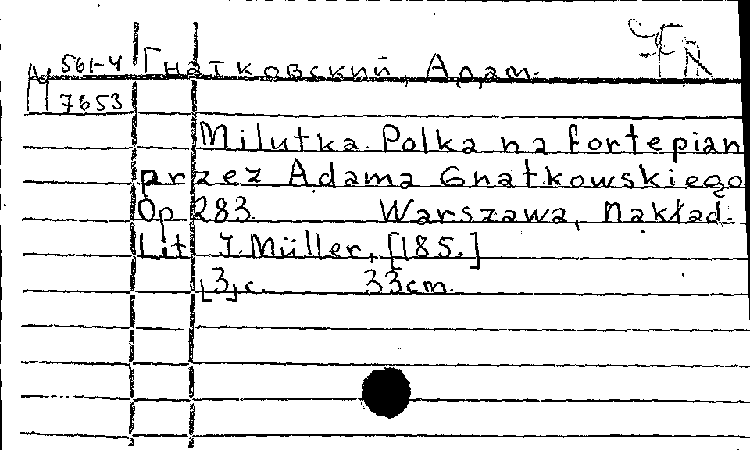 М 561-4 Гнатковский, Адам.
7653
Milutka. Polka na fortepian
przez Adama Gnatkowskiego
Op 283. Warszawa, nakład.
Lit J. Müller, [185.]
[3] c. 33 cm.